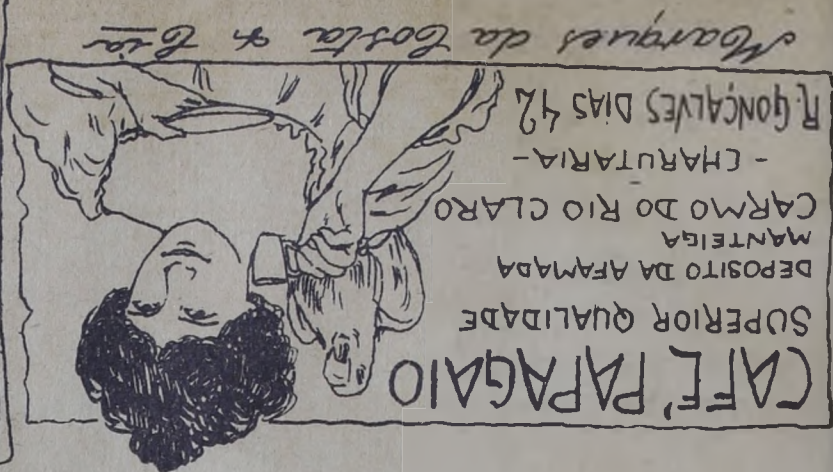 CAFÉ PAPAGAIO
SUPERIOR QUALIDADE
DEPOSITO DA AFAMADA
MANTEIGA
CARMO DO RIO CLARO
- CHARUTARIA -
R. GONÇALVES DIAS 42
Marques da Costa & Cia